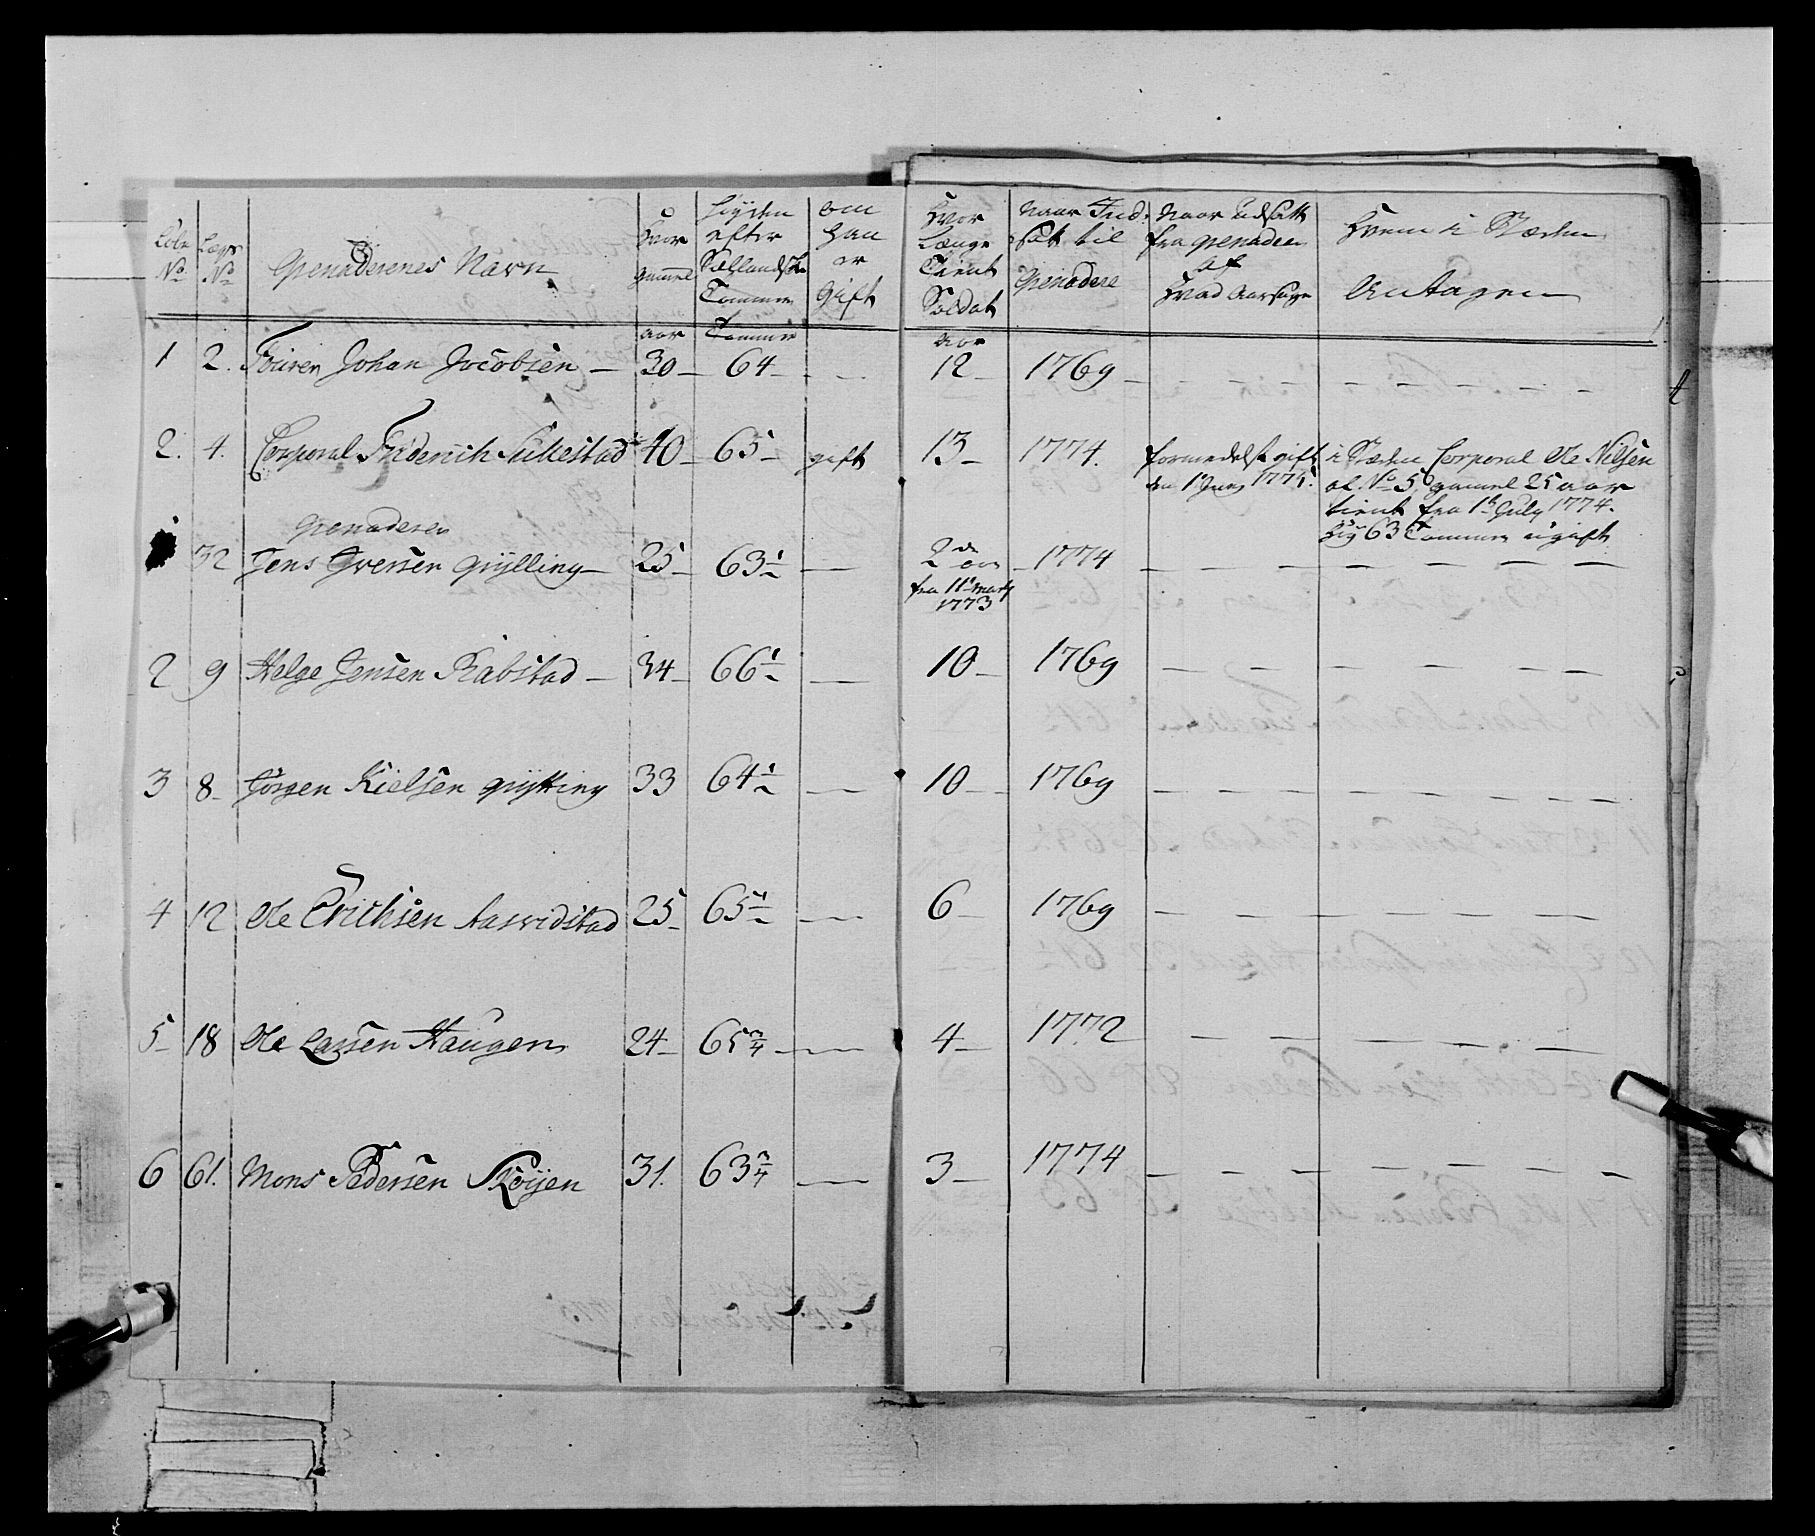 Lobe No. | Lægs No | Grenaderenes Navn | Hvor gammel | Høyden efter Sællandske Tommer | om han er gift | Hvor Længe Tient Soldat | Naar Ind sat til Grenadere | Naar udsatt fra grenadeer af Hvad Aarsage | Hvem i Stæden Antagen
aar | Tommer | aar
1 | 2. | Fourer Johan Jocobsen — | 30 — | 64 — | — | 12 — | 1769 — | — | —
2. | 4. | Corporal Friderich | 40 — | 65 — | gift | 13 — | 1774. | formedelst gift | i Stæden Corporal Ole Nilsen
den 1 Juny 1775. | af No 5 gamel 25 aar
tient fra 1te July 1774.
Høy 63 Tommer ugift
Grenaderer
32 | Jens Iversen Grylling — | 25 — | 63½ | — | 2de aar — | 1774 | — | —
fra 11te Marty
1773
2 | 9 | Helge Jensen Rabstad — | 34 — | 66½ | — | 10 — | 1769 | — | —
3 | 8 — | Jørgen Kielsen Grytting | 33 | 64½ | — | 10 — | 1769 | — | —
4 | 12 | Ole Erichsen Aasvidstad | 25 — | 65½ | — | 6 — | 1769 | — | —
5 — | 18 | Ole Larsen Haugen | 24 — | 65¾ | — | 4 — | 1772 | — | —
6 | 61. | Mons Pedersen Skøyen | 31. | 63¾ | — | 3 — | 1774 | — | —